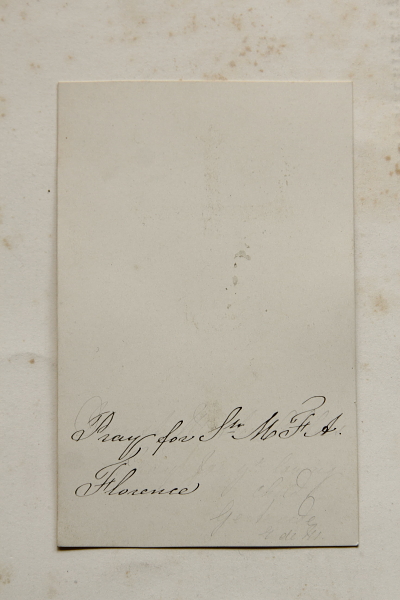 Pray for Str M F A.
Florence